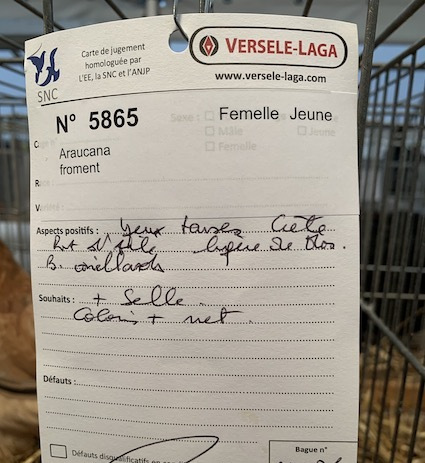 Carte de jugement
homologuée par
L'EE, la SNC et l'ANJP
SNC
VERSELE-LAGA
www.versele-laga.com
N° 5865
Femelle Jeune
Sexe :
Mâle
Jeune
Femelle
Araucana
froment
Aspects positifs : Yeux tarses Crête
ligne de dos.
B. oreillards
Souhaits : + Selle.
Coloris + net.
Défauts :
Défauts disqualificatifs
Bague n°